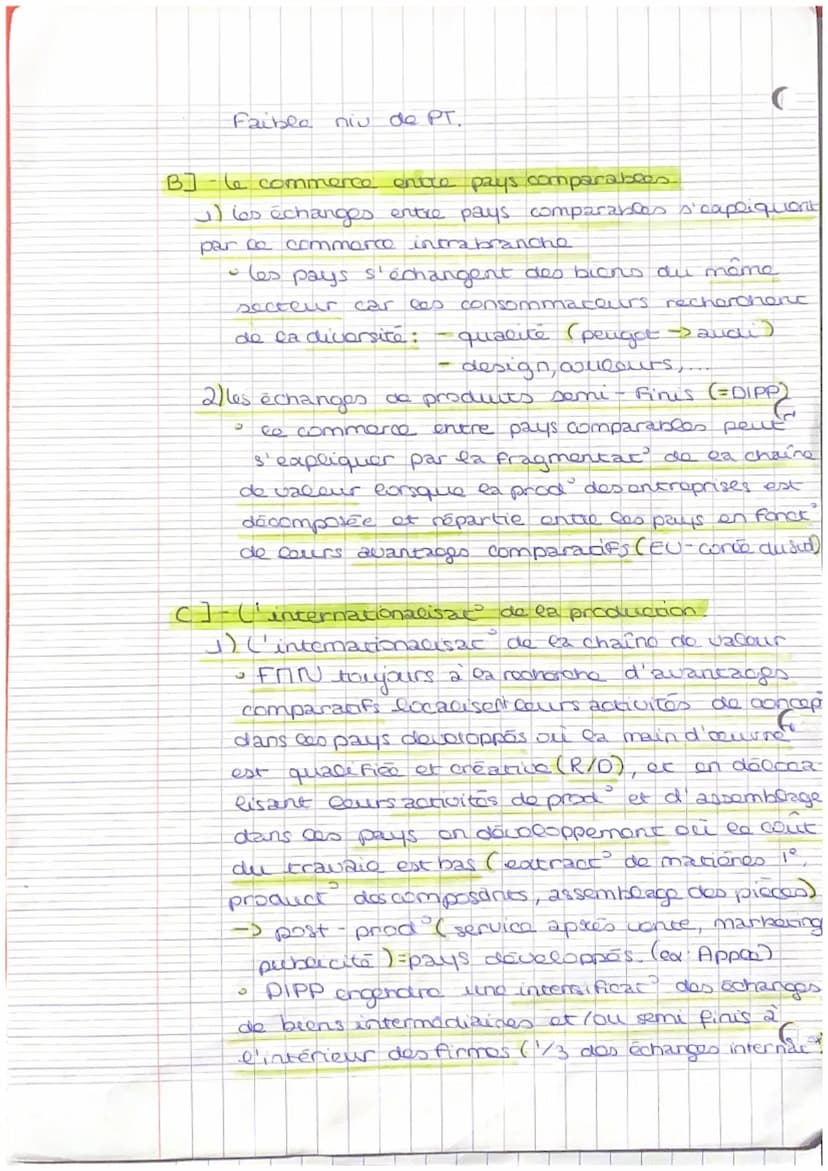 Faible niv de PT.
B] - le commerce entre pays comparables
1) les échanges entre pays comparables s'expliquent
par le commerce intrabranche
• les pays s'échangent des biens du même
secteur car les consommateurs recherchent
de la diversité : - qualité (peugot → audi)
- design, couleurs, ...
2) les échanges de produits semi-finis (=DIPP)
• le commerce entre pays comparables peut
s'expliquer par la fragmentat° de la chaîne
de valeur lorsque la prod° des entreprises est
décomposée et répartie entre les pays en fonct°
de leurs avantages comparatifs (EU-corée du sud)
C] - L'internationalisat° de la production
1) L'internationalisat° de la chaîne de valeur
• FMN toujours à la recherche d'avantages
comparatifs localisent leurs activités de concept°
dans les pays développés où la main d'œuvre
est qualifiée et créative (R/D), et en délocalisant
leurs activités de prod° et d'assemblage
dans les pays en développement où le coût
du travail est bas (extract° de matières 1°,
product° des composants, assemblage des pièces)
→ post-prod° (service après vente, marketing
publicité) = pays développés. (ex: Apple)
• DIPP engendre une intensificat° des échanges
de biens intermédiaires et/ou semi finis à
l'intérieur des firmes (1/3 des échanges internat°